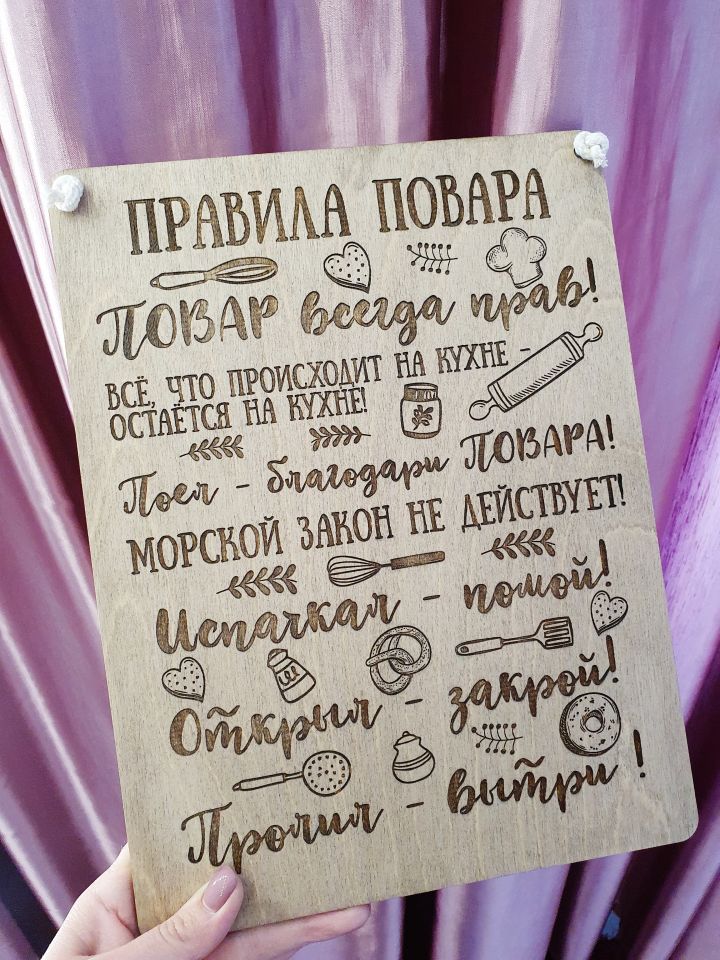 ПРАВИЛА ПОВАРА
ПОВАР всегда прав!
ВСЁ, ЧТО ПРОИСХОДИТ НА КУХНЕ -
ОСТАЁТСЯ НА КУХНЕ!
Поел - благодари ПОВАРА!
МОРСКОЙ ЗАКОН НЕ ДЕЙСТВУЕТ!
Испачкал - помой!
Открыл - закрой!
Пролил - вытри!